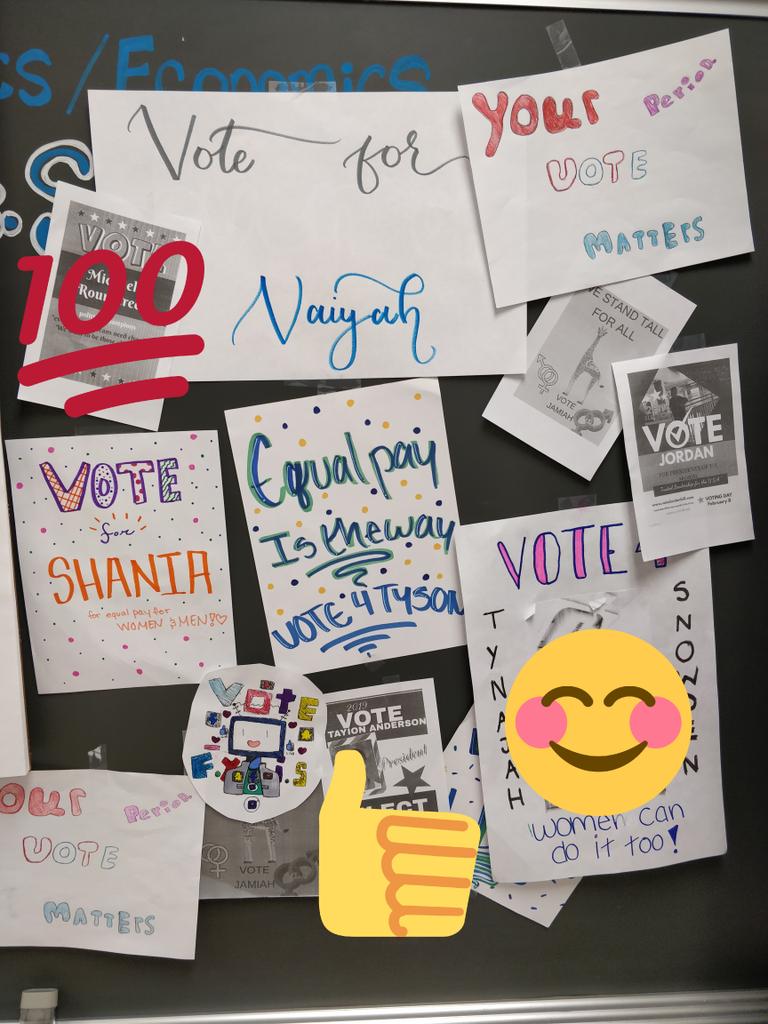 cs/Economics
Vote for
Naiyah
YOUR
Period
VOTE
MATTERS
VOTE
100
E STAND TALL
FOR ALL
VOTE
JAMIAH
VOTE
JORDAN
VOTING DAY
February 8
VOTE
for
SHANIA
for equal pay for
WOMEN & MEN!
Equal pay
Is the way
VOTE 4 TYSON
VOTE 4
TYNAJAH
SNOWDEN
women can
do it too!
VOTE
2019
VOTE
TAYION ANDERSON
President
OUR
Period
VOTE
MATTERS
VOTE
JAMIAH